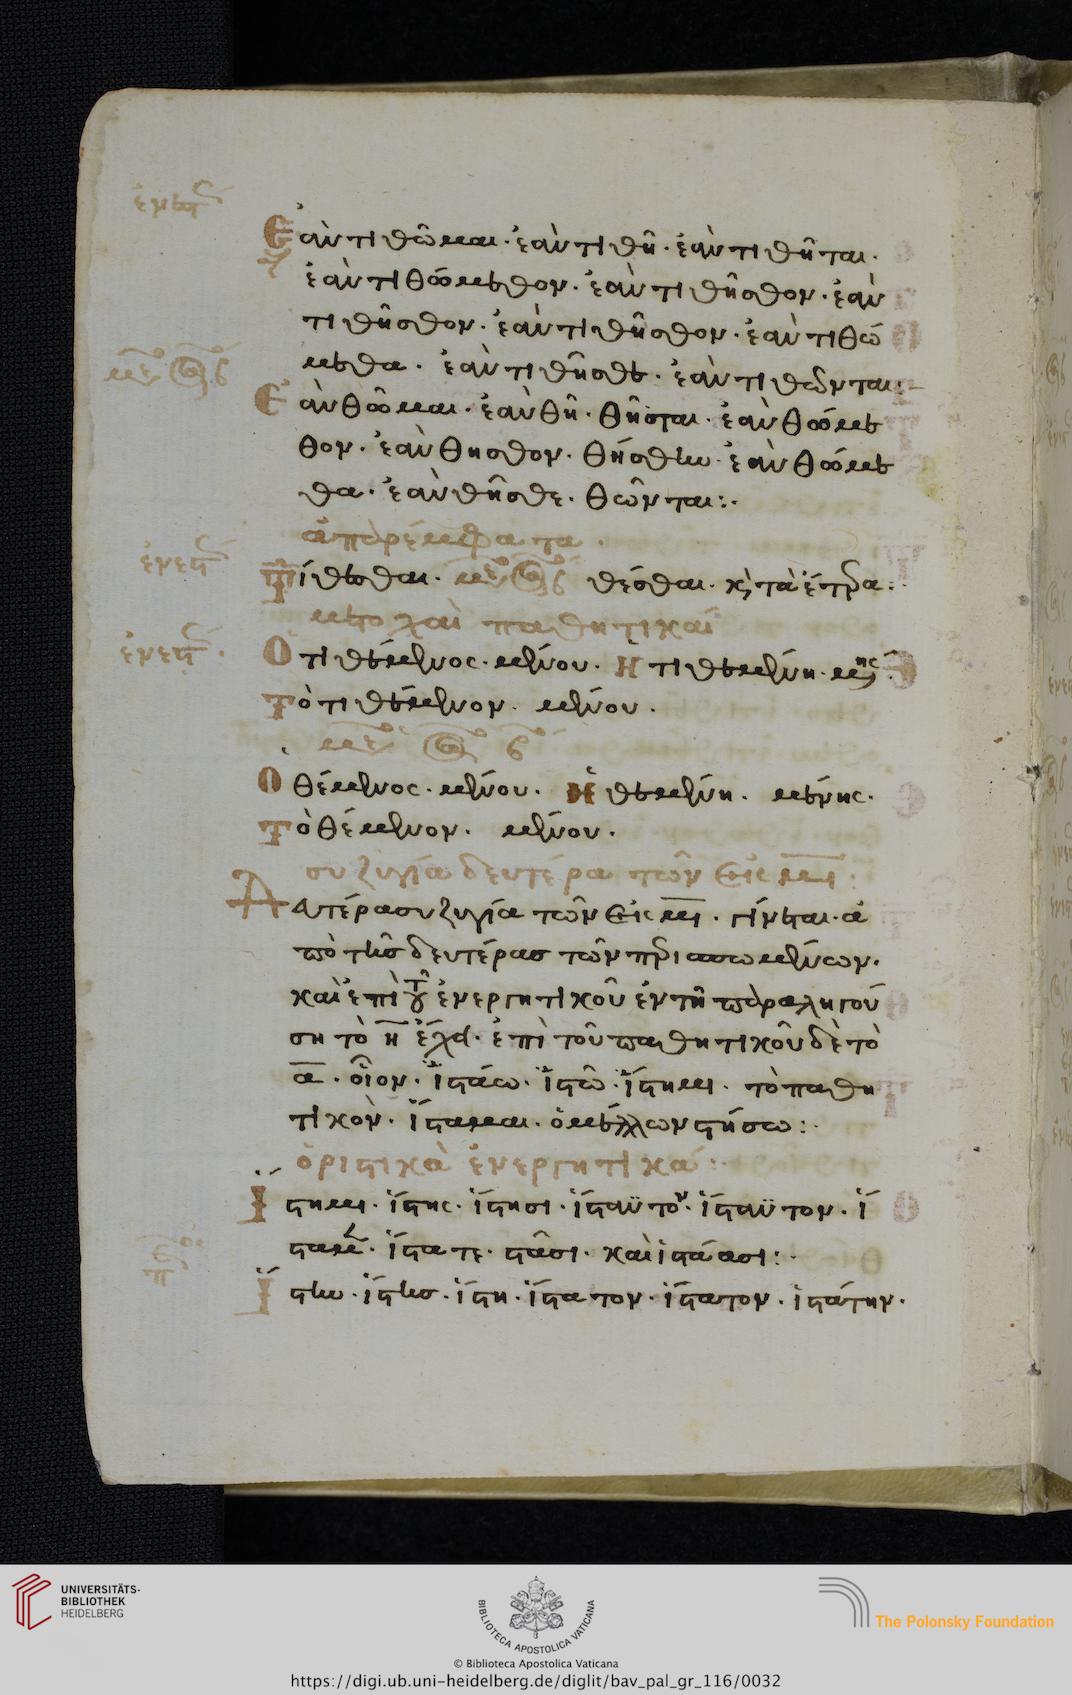 Ἐὰν τιθῶμαι· ἐὰν τιθῆ· ἐὰν τιθῆται·
ἐὰν τιθώμεθον· ἐὰν τιθῆσθον· ἐὰν
τιθῆσθον· ἐὰν τιθῆσθον· ἐὰν τιθώ
μεθα· ἐὰν τιθῆσθε· ἐὰν τιθῶνται:
Ἐὰν θῶμαι· ἐὰν θῆ· θῆσται· ἐὰν θώμε
θον· ἐὰν θησθον· θήσθην· ἐὰν θώμε
θα· ἐὰν θῆσθε· θῶνται:·
ἀπαρέμφατα·
τίθεσθαι· θέσθαι· κ τὰ ἕτερα:
μετοχαὶ παθητικαί
Ὁ τιθέμενος· μένου· Ἡ τιθεμένη· μένης:
Τὸ τιθέμενον· μένου·
Ὁ θέμενος· μένου· Ἡ θεμένη· μένης·
Τὸ θέμενον· μένου·
συζυγία δευτέρα τῶν εἰς μι:
Δευτέρα συζυγία τῶν εἰς μι· γίνεται ἀ
πὸ τῆς δευτέρας τῶν περισπωμένων·
καὶ ἐπὶ τοῦ ἐνεργητικοῦ ἐν τῆ παραληγού
ση τὸ η ἔχει· ἐπὶ τοῦ παθητικοῦ δὲ τὸ
α· οἷον· ἱστάω· ἱστῶ· ἵστημι· τὸ παθη
τικὸν· ἵσταμαι· ὁ μέλλων στήσω:·
ὁριστικὰ ἐνεργητικά:
Ἵστημι· ἵστης· ἵστησι· ἵσταϋτον· ἵσταϋτον· ἵ
σταμεν· ἵστατε· στᾶσι· καὶ ἱστάασι:·
Ἵστην· ἵστης· ἵστη· ἵστατον· ἵστατον· ἱστάτην·
UNIVERSITÄTS-
BIBLIOTHEK
HEIDELBERG
BIBLIOTECA APOSTOLICA VATICANA
The Polonsky Foundation
© Biblioteca Apostolica Vaticana
https://digi.ub.uni-heidelberg.de/diglit/bav_pal_gr_116/0032